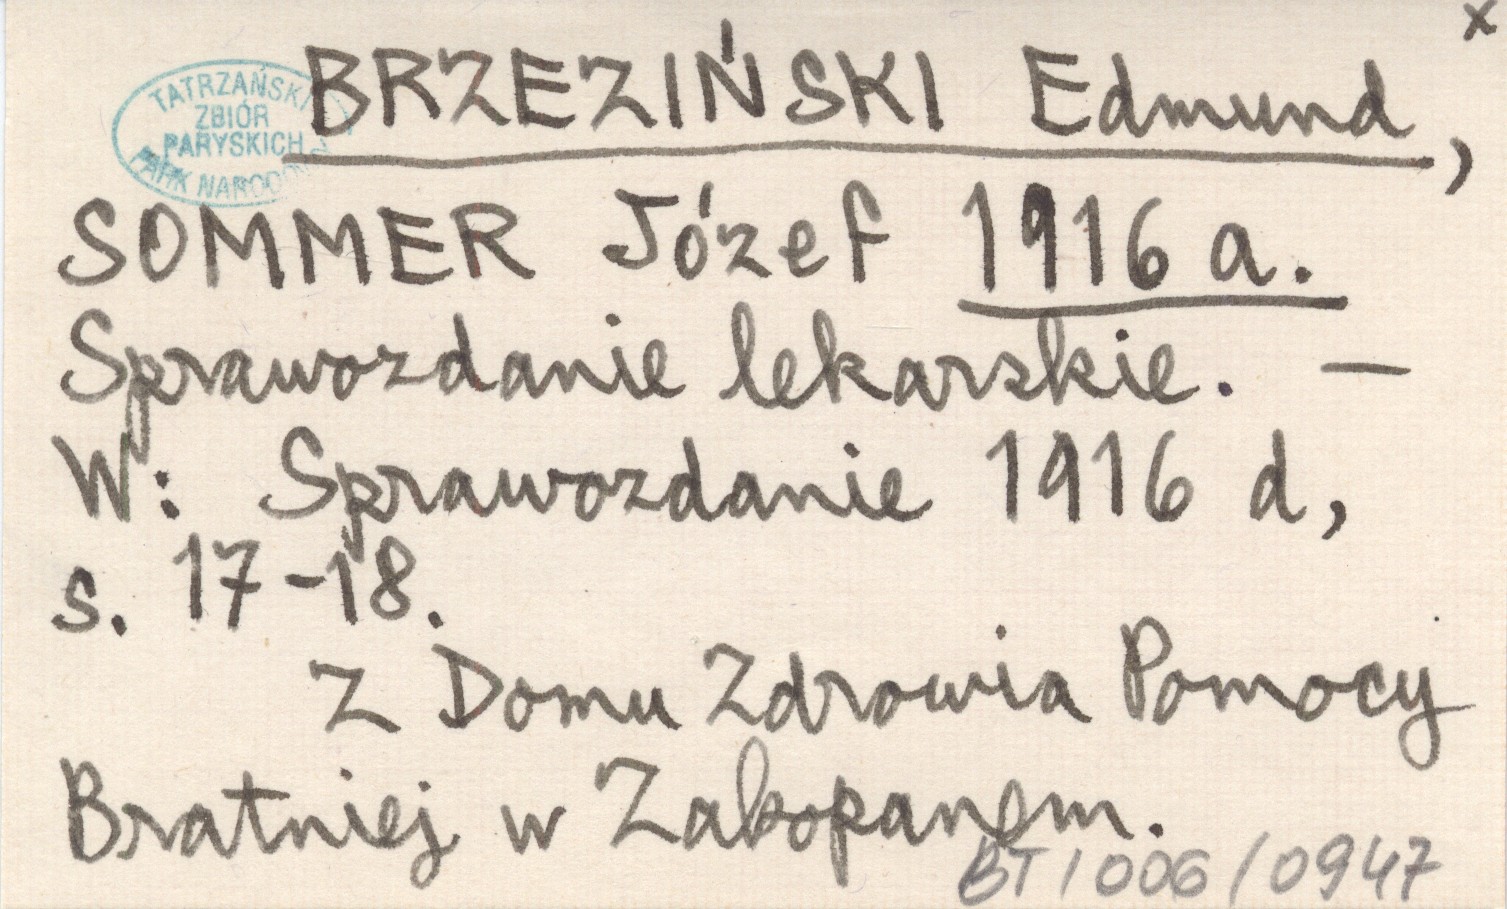 x
BRZEZIŃSKI Edmund,
TATRZAŃSKI
ZBIÓR
PARYSKICH
PARK NARODOWY
SOMMER Józef 1916 a.
Sprawozdanie lekarskie. —
W: Sprawozdanie 1916 d,
s. 17-18.
Z Domu Zdrowia Pomocy
Bratniej w Zakopanem.
BT/006/0947